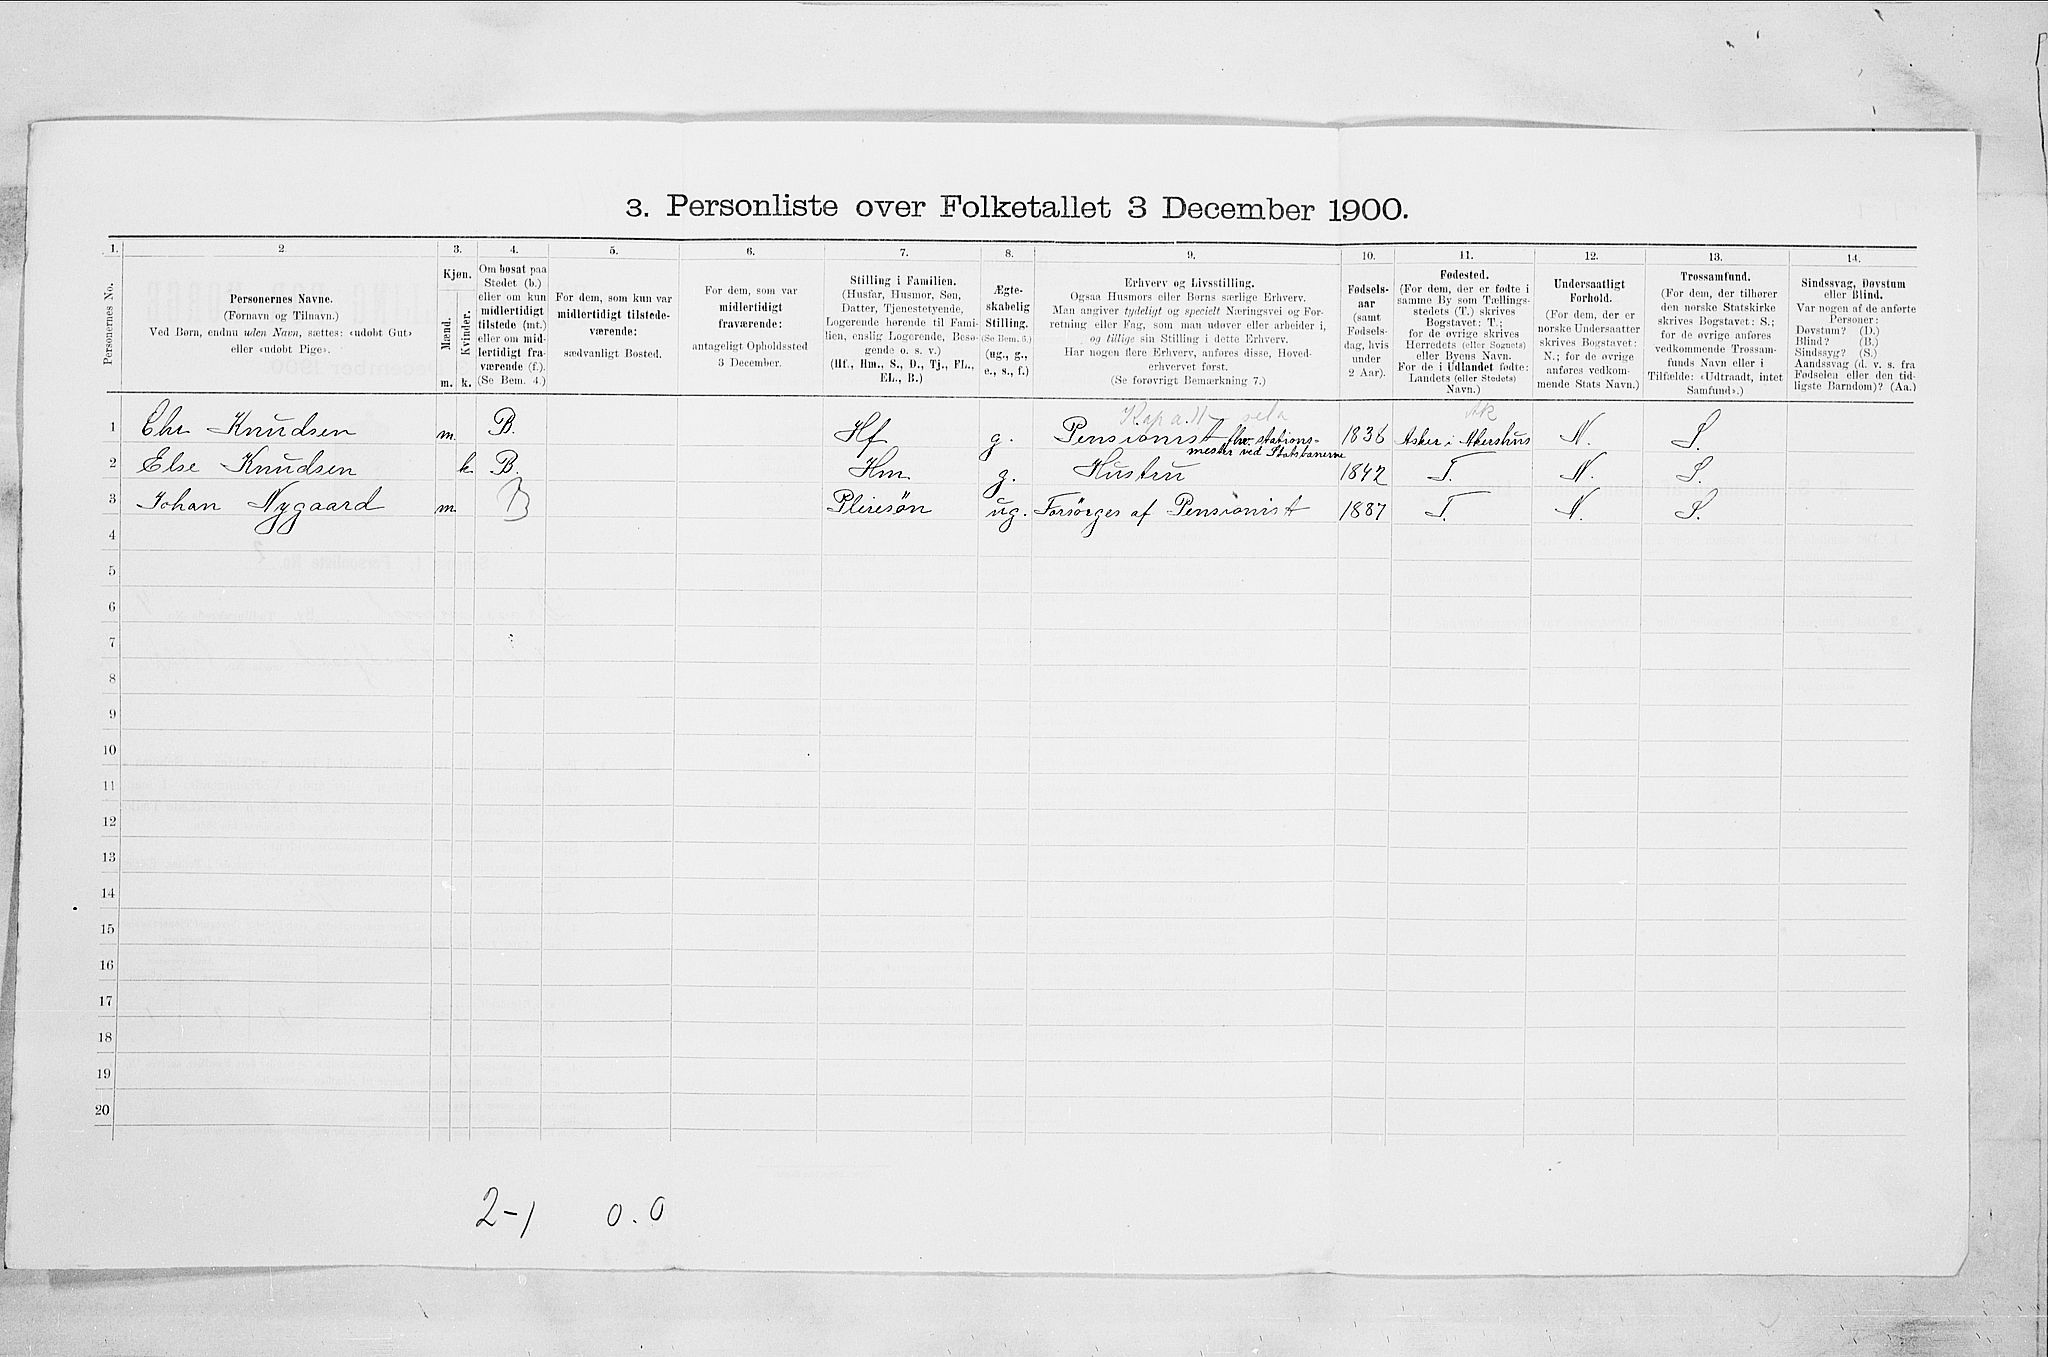 3. Personliste over Folketallet 3 December 1900.
1. 2. 3. 4. 5. 6. 7. 8. 9. 10. 11. 12. 13. 14.
Personernes No.
Personernes Navne.
(Fornavn og Tilnavn.)
Ved Børn, endnu uden Navn, sættes: «udøbt Gut»
eller «udøbt Pige».
Kjøn.
Mænd.
Kvinder.
m. k.
Om bosat paa
Stedet (b.)
eller om kun
midlertidigt
tilstede (mt.)
eller om mid-
lertidigt fra-
værende (f.).
(Se Bem. 4.)
For dem, som kun var
midlertidigt tilstede-
værende:
sædvanligt Bosted.
For dem, som var
midlertidigt
fraværende:
antageligt Opholdssted
3 December.
Stilling i Familien.
(Husfar, Husmor, Søn,
Datter, Tjenestetyende,
Logerende hørende til Fami-
lien, enslig Logerende, Besø-
gende o. s. v.)
(Hf., Hm., S., D., Tj., FL.,
EL., B.)
Ægte-
skabelig
Stilling.
(Se Bem. 6.)
(ug., g.,
e., s., f.)
Erhverv og Livsstilling.
Ogsaa Husmors eller Børns særlige Erhverv.
Man angiver tydeligt og specielt Næringsvei og For-
retning eller Fag, som man udøver eller arbeider i,
og tillige sin Stilling i dette Erhverv.
Har nogen flere Erhverv, anføres disse, Hoved-
erhvervet først.
(Se forøvrigt Bemærkning 7.)
Fødsels-
aar
(samt
Fødsels-
dag, hvis
under
2 Aar).
Fødested.
(For dem, der er fødte i
samme By som Tællings-
stedets (T.) skrives
Bogstavet: T.;
for de øvrige skrives
Herredets (eller Sognets)
eller Byens Navn.
For de i Udlandet fødte:
Landets (eller Stedets)
Navn.)
Undersaatligt
Forhold.
(For dem, der er
norske Undersaatter
skrives Bogstavet:
N.; for de øvrige
anføres vedkom-
mende Stats Navn.)
Trossamfund.
(For dem, der tilhører
den norske Statskirke
skrives Bogstavet: S.;
for de øvrige anføres
vedkommende Trossam-
funds Navn eller i
Tilfælde: «Udtraadt, intet
Samfund».)
Sindssvag, Døvstum
eller Blind.
Var nogen af de anførte
Personer:
Døvstum? (D.)
Blind? (B.)
Sindssyg? (S.)
Aandssvag (d. v. s. fra
Fødselen eller den tid-
ligste Barndom)? (Aa.)
Ak
1 Chr Knudsen m. B. Hf g. Pensionist fhv. stations-
mester ved Statsbanerne 1836 Asker i Akershus N. S.
2 Else Knudsen k. B. Hm g. Hustru 1842 T. N. S.
3 Johan Nygaard m B Pleiesøn ug. Forsørges af Pensionist 1887 T. N. S.
4
5
6
7
8
9
10
11
12
13
14
15
16
17
18
19
20
2-1 0.0